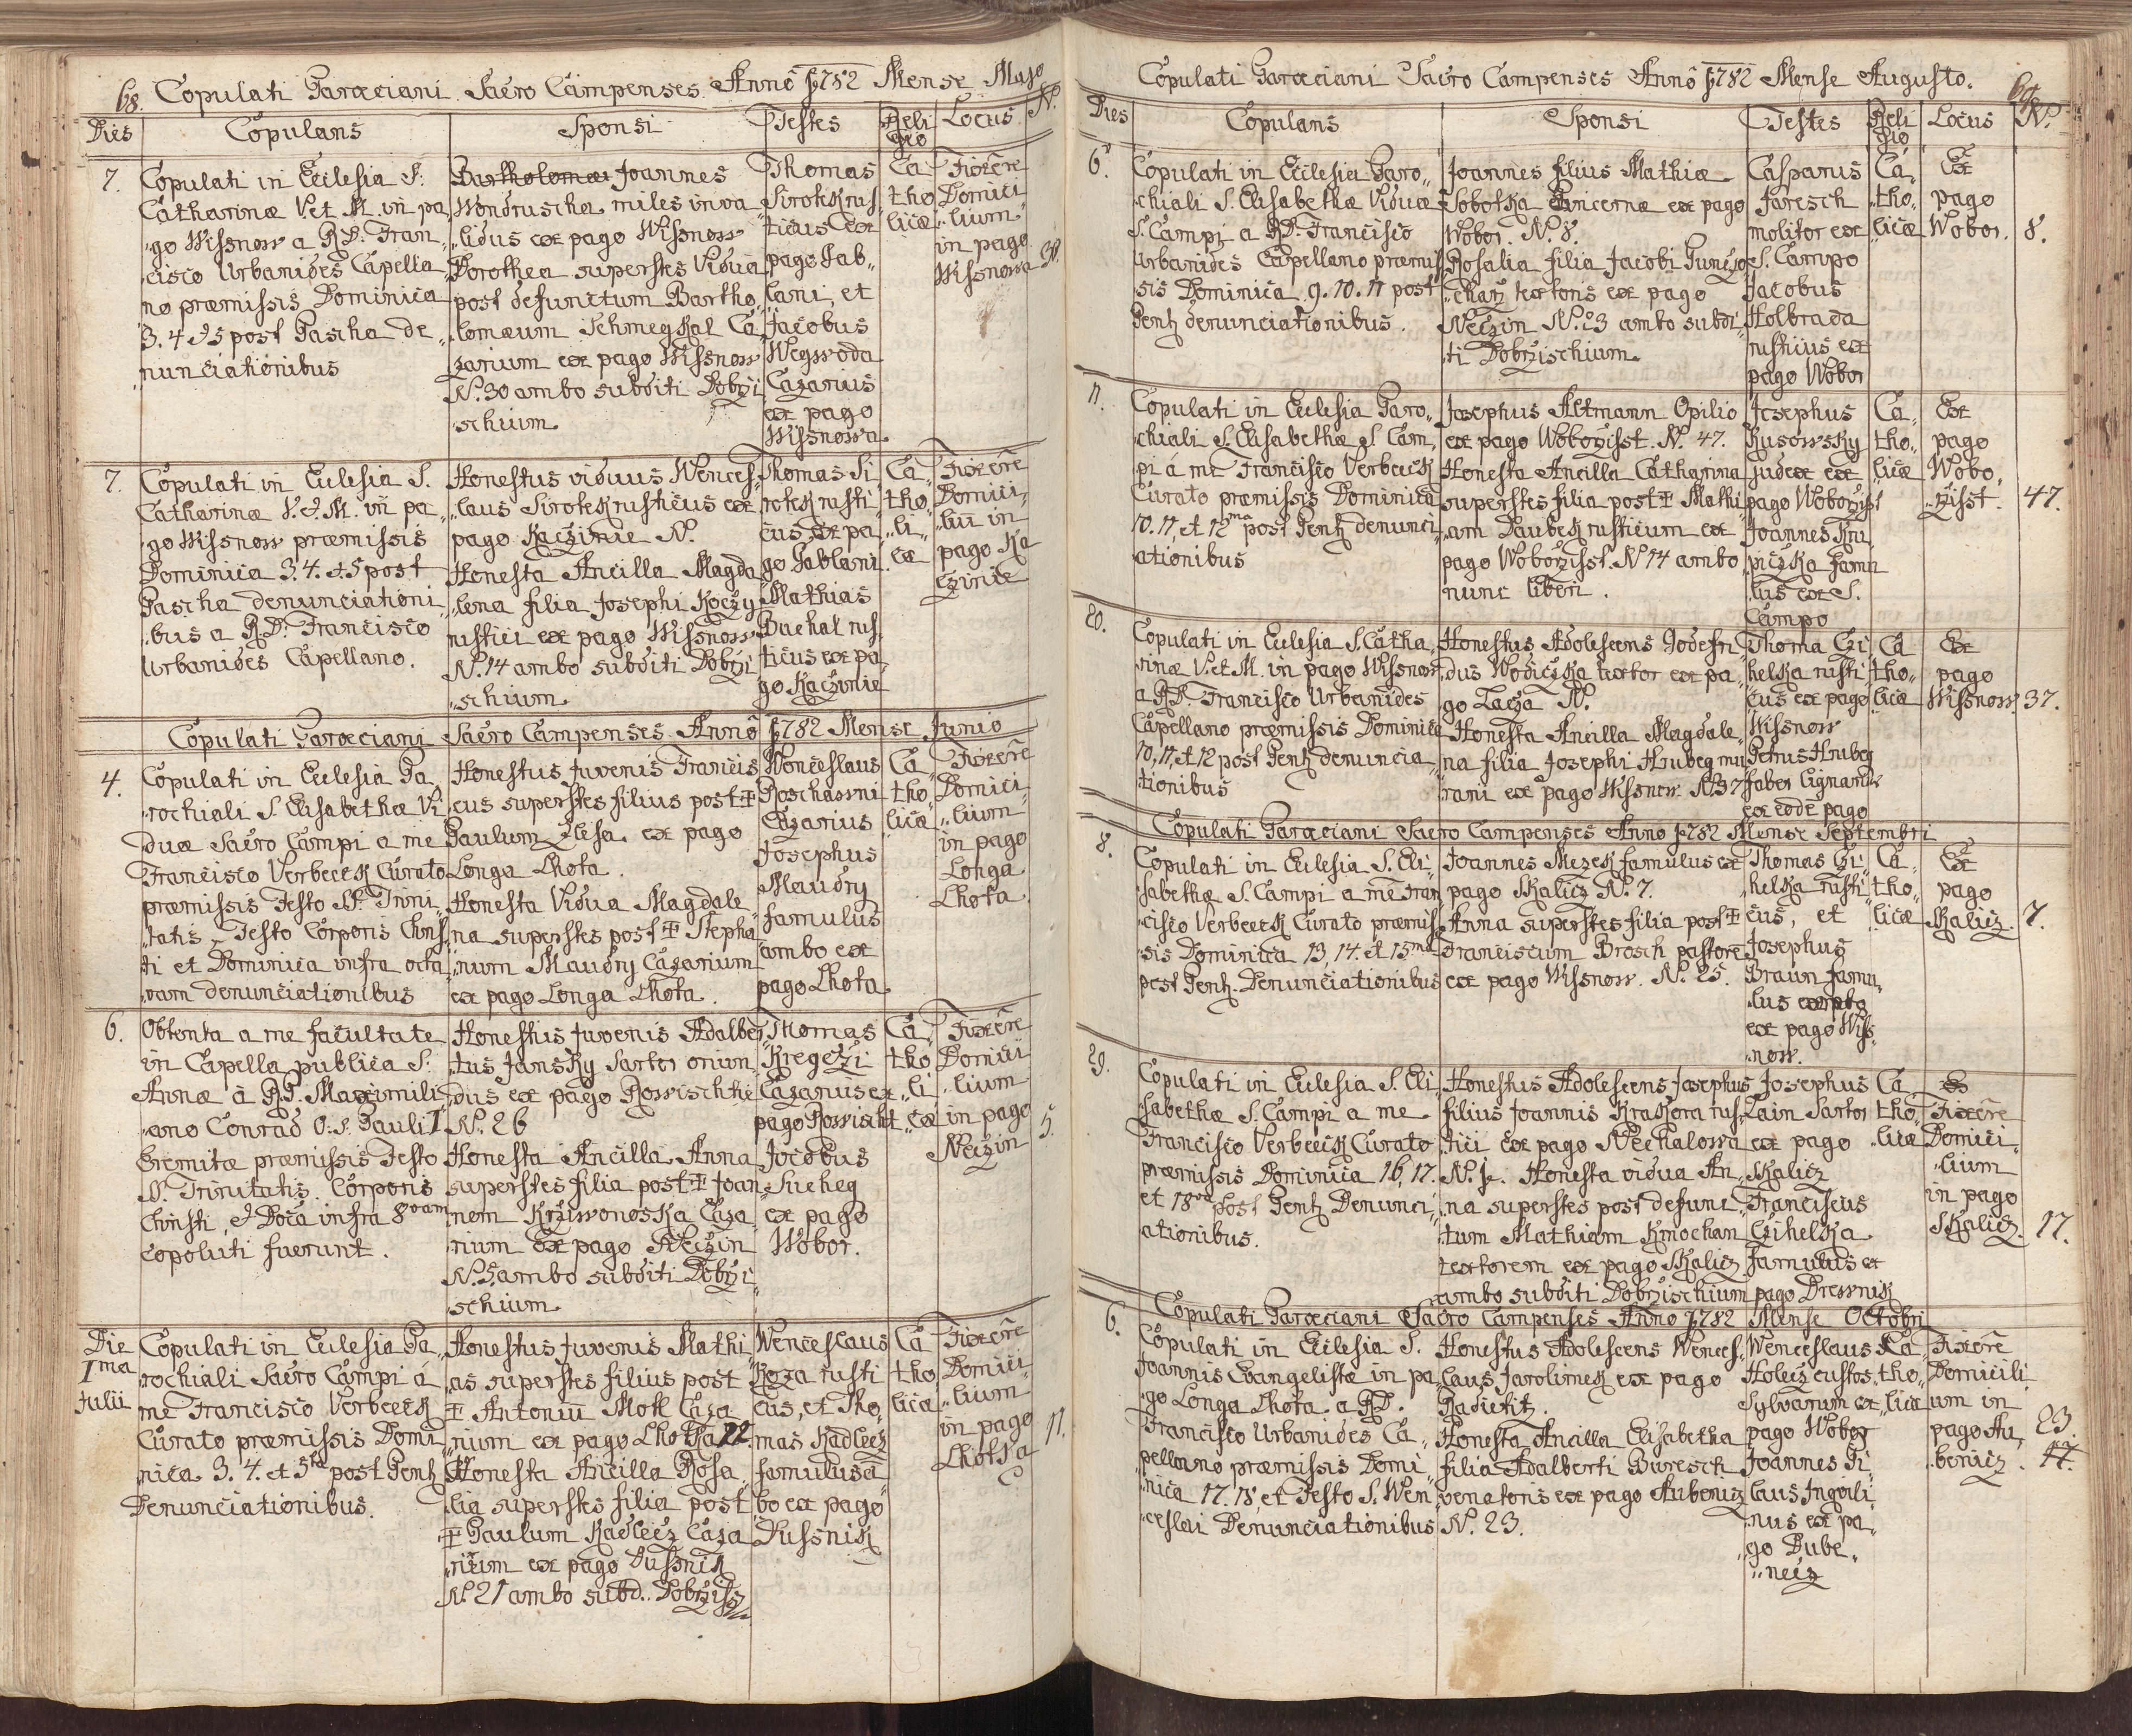 68. Copulati Paroeciani Sacro Campenses Anno 1782 Mense Majo
Dies Copulans Sponsi Testes Reli gio Locus N.
7.
Copulati in Ecclesia S:
Catharinæ V. et M. in pa„
„go Wissnow a R.D. Fran„
„cisco Urbanides Capella„
no præmissis Dominica
3. 4 et 5 post Pascha de„
nunciationibus
Bartholomæi Joannes
Wondruscha miles inva
„lidus ex pago Wissnow
Dorothea superstes Vidua
post defunctum Bartho„
„lomæum Schmegkal Ca„
zarium ex pago Wissnow
N. 30 ambo subditi Dobrzi
„schium
Thomas
Sirotek rus„
ticus ex
pago Jab„
lani, et
Jacobus
Wegwoda
Cazarius
ex pago
Wissnowa
Ca„
tho
licæ
Fixere
Domici
„lium
in pago
Wissnowa
30.
7.
Copulati in Eclesia S.
Catharinæ V. et M. in pa„
„go Wissnow præmissis
Dominica 3. 4. et 5 post
Pascha denunciationi
„bus a R.D. Francisco
Urbanides Capellano.
Honestus viduus Wences„
„laus Sirotek rusticus ex
pago Kaczinie N.
Honesta Ancilla Magda
„lena filia Josephi Koczy
rustici ex pago Wissnow
N. 14 ambo subditi Dobrzi
„schium
Thomas Si
rotek rusti
cus ex pa„
go Jablani
Mathias
Buchal rus„
ticus ex pa„
go Kaczinie
Ca„
tho„
„li„
cæ
Fixere
Domici„
„lii in
pago Ka
czinie
Copulati Paroeciani Sacro Campenses Anno 1782 Mense Junio
4.
Copulati in Eclesia Pa„
„rochiali S. Elisabethæ Vi
duæ Sacro Campi a me
Francisco Verbeeck Curato
præmissis Festo SS. Trini„
„tatis, Festo Corporis Chris„
ti et Dominica infra octa
„vam denunciationibus
Honestus Juvenis Francis„
cus superstes filius post ‡
Paulum Zlisa ex pago
Longa Lhota.
Honesta Vidua Magdale
na superstes post ‡ Stepha
„num Maudry Cazarium
ex pago Longa Lhota.
Wenceslaus
Roschawni
Cazarius
Josephus
Maudry
famulus
ambo ex
pago Lhota
Ca„
tho„
licæ
Fixere
Domici„
„lium
in pago
Longa
Lhota.
6.
Obtenta a me facultate
in Capella publica S:
Annæ à R.P. Maximili„
„ano Conrad O. S. Pauli I
Eremitæ præmissis Festo
SS. Trinitatis. Corporis
Christi, et Doca infra 8vam
copoluti fuerunt.
Honestus Juvenis Adalber„
„tus Jansky Sartor oriun„
dus ex pago Rowischtie
N. 26
Honesta Ancilla Anna
superstes filia post ‡ Joan„
nem Krziwonoska Caza„
rium ex pago Neczin
N. 5 ambo subditi Dobrzi„
schium
Thomas
Kregczi
Cazarius ex
pago Rowischt
Jocobus
Sucheg
ex pago
Wobor.
Ca„
tho
„li„
cæ
Fixere
Domici
„lium
in pago
Neczin
5.
Die
Ima
Julii
Copulati in Eclesia Pa„
rochiali Sacro Campi á
me Francisco Verbeeck
Curato præmissis Domi
nica 3. 4. et 5ta post Pent
Denunciationibus.
Honestus Juvenis Mathi
as superstes filius post
‡ Antonium Motl Caza
„rium ex pago Lhotka 22.
Honesta Ancilla Rosa
lia superstes filia post
‡ Paulum Kadlecz Caza
„rium ex pago Dussnik
N. 21 ambo subd. Dobrzisz
Wenceslaus
Koza rusti
cus, et Tho„
mas Kadlecz
famulus ā
bo ex pago
Dussnik
Ca
tho
licæ
Fixere
Domici
„lium
in pago
Lhotka
11.
Copulati Paroeciani Sacro Campenses Anno 1782 Mense Augusto. 69.
Dies Copulans Sponsi Testes Reli gio Locus N.
6.
Copulati in Ecclesia Paro„
chiali S. Elisabethæ Viduæ
S. Campi a R.D. Francisco
Urbanides Capellano præmis„
sis Dominica 9. 10. 11 post
Pent denunciationibus.
Joannes filius Mathiæ
Sobotka Pincernæ ex pago
Wobor. N. 8.
Rosalia filia Jacobi Punczo„
„charz textoris ex pago
Neczin N. 23 ambo subdi„
ti Dobrzischium
Casparus
Jaresch
molitor ex
S. Campo
Jacobus
Holbrada
rusticus ex
pago Wobor
Ca„
„tho„
„licæ
Ex
pago
Wobor.
8.
11.
Copulati in Eclesia Paro„
chiali S. Elisabethæ S. Cam„
pi á me Francisco Verbeeck
Curato præmissis Dominica
10. 11, et 12ma post Pent denunci„
ationibus
Josephus Altmann Opilio
ex pago Woborzisst. N. 47.
Honesta Ancilla Catharina
superstes filia post ‡ Mathi
„am Daubek rusticum ex
pago Woborzisst. N 14 ambo
nunc liberi.
Josephus
Rusowsky
Judex ex
pago Woborzisst
Joannes Kru
piczka famu
„lus ex S.
Campo
Ca„
tho„
licæ
Ex
pago
Wobo„
„rzisst.
47.
20.
Copulati in Eclesia S. Catha„
rinæ V. et M. in pago Wissnow
a R.D. Francisco Urbanides
Capellano præmissis Dominica
10, 11, et 12 post Pent denuncia„
tionibus
Honestus Adolescens Godefri„
„dus Wodiczka textor ex pa„
go Lacza N.
Honesta Ancilla Magdale„
na filia Josephi Hrubeg mu
rarii ex pago Wissnow N. 37
Thoma Czi
helka rusti
cus ex pago
Wissnow
Petrus Hrubeg
faber lignarius
ex eode pago
Ca
tho„
„licæ
Ex
pago
Wissnow.
37.
Copulati Paroeciani Sacro Campenses Anno 1782 Mense Septembri
8.
Copulati in Eclesia S. Eli„
sabethæ S. Campi a me Fran
„cisco Verbeeck Curato præmis„
sis Dominica 13, 14. et 15ma
post Pent. Denunciationibus
Joannes Mezek famulus ex
pago Skalicz N. 7.
Anna superstes filia post ‡
Franciscum Brosch pastore
ex pago Wissnow. N. 25.
Thomas Czi„
helka rusti
cus, et
Josephus
Braun famu„
„lus
ex pago Wiss„
„now.
Ca„
tho„
licæ
Ex
pago
Skalicz.
7.
29.
Copulati in Eclesia S. Eli„
sabethæ S. Campi a me
Francisco Verbeeck Curato
præmissis Dominica 16, 17.
et 18va post Pent Denunci„
ationibus.
Honestus Adolescens Josephus
filius Joannis Kraskora rus„
tici ex pago Nechalowa
N. 1. Honesta vidua An„
na superstes post defunc„
tum Mathiam Kmochan
textorem ex pago Skalicz
ambo subditi Dobrzischium
Josephus
Lain Sartor
ex pago
Skalicz
Franciscus
Czihelka
famulus ex
pago Drewnik
Ca
tho„
licæ
Fixere
Domici„
„lium
in pago
Skalicz.
17.
Copulati Paroeciani Sacro Campenses Anno 1782 Mense Octobri
6.
Copulati in Ecclesia S.
Joannis Evangelistæ in pa„
„go Longa Lhota a R.D.
Francisco Urbanides Ca„
„pellano præmissis Domi„
nica 17. 18, et Festo S. Wen„
„ceslai Denunciationibus
Honestus Adolescens Wences„
„laus Jarolimek ex pago
Radietitz.
Honesta Ancilla Elisabetha
filia Adalberti Buresch
venatoris ex pago Aubenicz
N. 23.
Wenceslaus
Holecz custos
Sylvarum ex
pago Wobor
Joannes Gi
laus Inquili„
nus ex pa„
„go Dube„
„necz
Ca
tho„
„licæ
Fixere
Domicili
um in
pago Au„
„benicz.
23.
17.